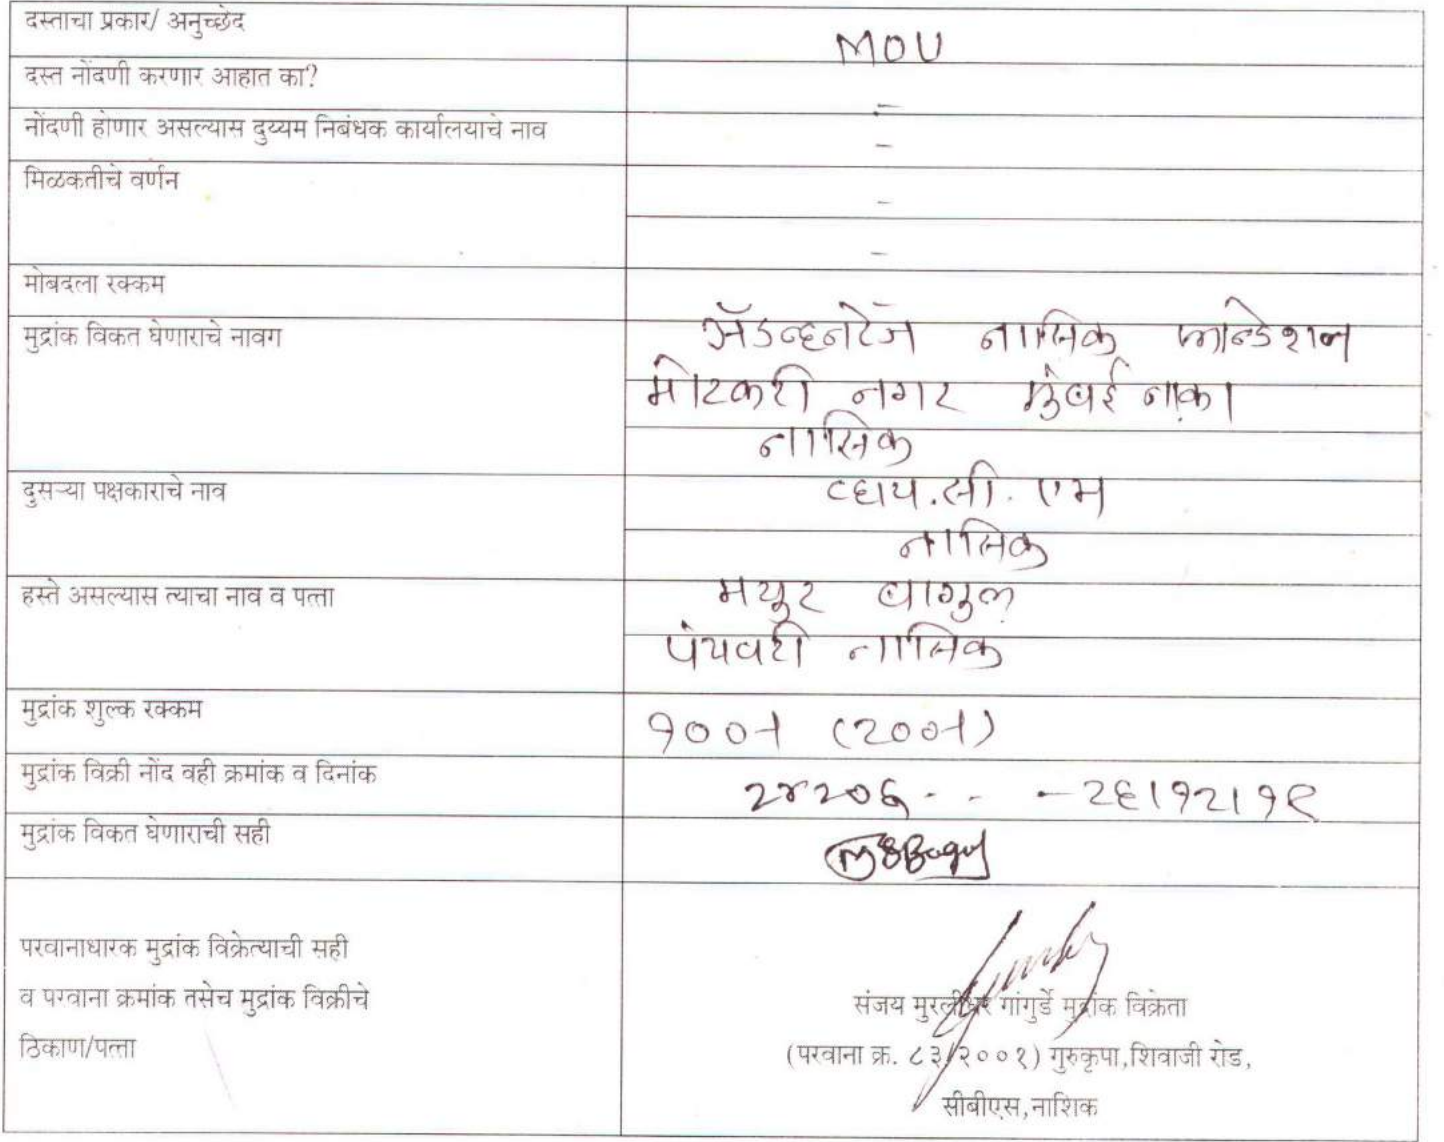 दस्ताचा प्रकार/ अनुच्छेद MOU
दस्त नोंदणी करणार आहात का? -
नोंदणी होणार असल्यास दुय्यम निबंधक कार्यालयाचे नाव -
मिळकतीचे वर्णन -
-
मोबदला रक्कम
मुद्रांक विकत घेणाराचे नावग ॲडव्हनटेज नासिक फान्डेशन
मोटकरी नगर मुंबई नाका
नासिक
दुसऱ्या पक्षकाराचे नाव व्हाय.सी. एम
नासिक
हस्ते असल्यास त्याचा नाव व पत्ता मयुर बागुल
पंचवटी नासिक
मुद्रांक शुल्क रक्कम १००न (२००न)
मुद्रांक विक्री नोंद वही क्रमांक व दिनांक २४२०६ - - - २६।१२।१९
मुद्रांक विकत घेणाराची सही
परवानाधारक मुद्रांक विक्रेत्याची सही
व परवाना क्रमांक तसेच मुद्रांक विक्रीचे
ठिकाण/पत्ता
संजय मुरलीधर गांगुर्डे मुद्रांक विक्रेता
(परवाना क्र. ८३/२००१) गुरुकृपा,शिवाजी रोड,
सीबीएस,नाशिक